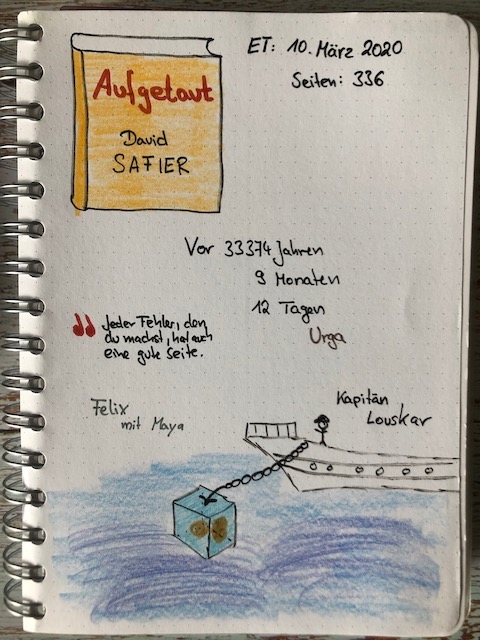 Aufgetaut
David
SAFIER
ET: 10. März 2020
Seiten: 336
Vor 33374 Jahren
9 Monaten
12 Tagen
Urga
"Jeder Fehler, den
du machst, hat auch
eine gute Seite.
Felix
mit Maya
Kapitän
Louskar